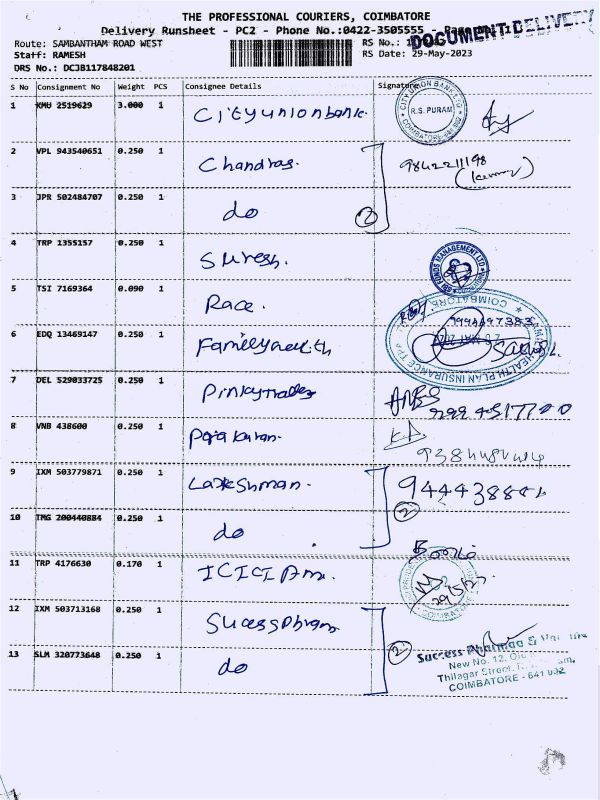 THE PROFESSIONAL COURIERS, COIMBATORE
Delivery Runsheet - PC2 - Phone No.:0422-3505555 -
DOCUMENT DELIVERY
Route: SAMBANTHAM ROAD WEST
RS No.:
Staff: RAMESH
RS Date: 29-May-2023
DRS No.: DCJB117848201
S No Consignment No Weight PCS Consignee Details Signature
1 KMU 2519629 3.000 1 Cityunionbank.
CITY UNION BANK LTD R.S. PURAM COIMBATORE-641 002
2 VPL 943540651 0.250 1 Chandras. 9842211198
3 JPR 502484707 0.250 1 do 2
4 TRP 1355157 0.250 1 Suresh.
SBI FUNDS MANAGEMENT LTD
5 TSI 7169364 0.090 1 Race.
COIMBATORE
6 EDQ 13469147 0.250 1 Familyhealth
HEALTH PLAN INSURANCE TPA
7 DEL 529033725 0.250 1 Pinkytrades
8 VNB 438600 0.250 1
9 IXM 503779871 0.250 1 Lakshman.
10 TMG 200440884 0.250 1 do 2
11 TRP 4176630 0.170 1 ICICI
29/5/23
COIMBATORE
12 IXM 503713168 0.250 1 Sucessphram
13 SLM 320773648 0.250 1 do 2
Success Pharma &
New No. 12,
Thilagar Street,
COIMBATORE - 641 002